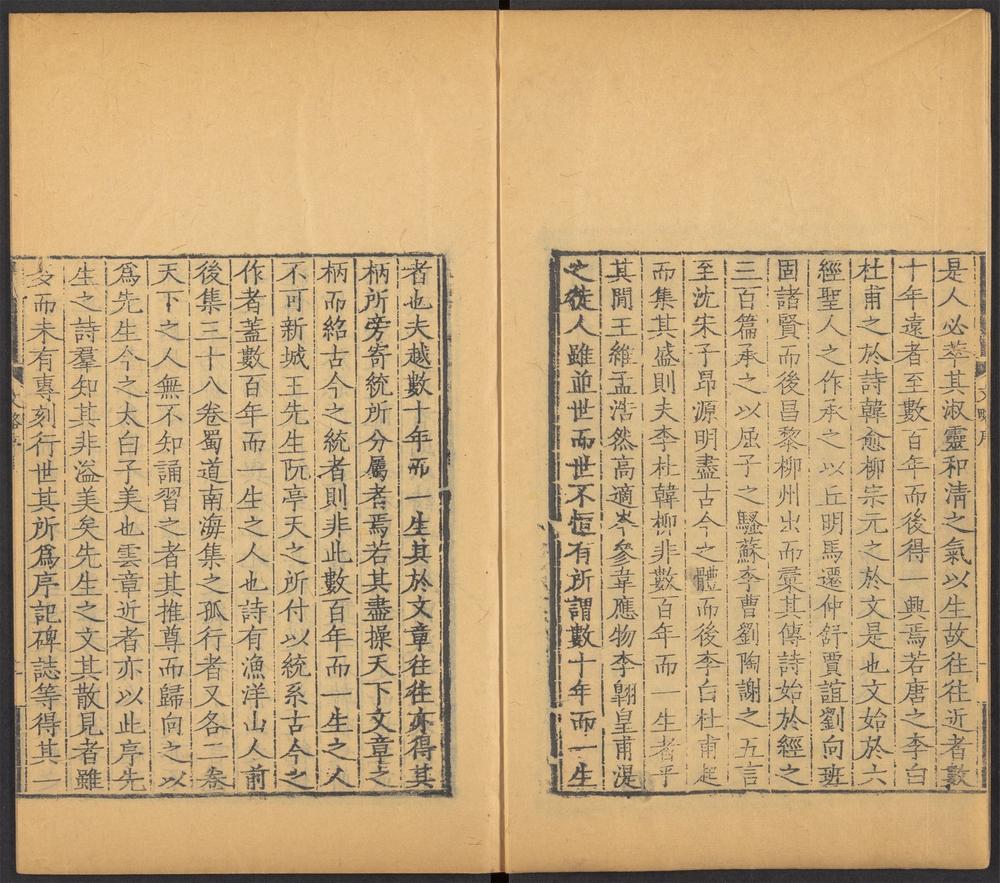 是人必萃其淑靈和淸之氣以生故往往近者數
十年遠者至數百年而後得一興焉若唐之李白
杜甫之於詩韓愈柳宗元之於文是也文始於六
經聖人之作承之以丘明馬遷仲舒賈誼劉向班
固諸賢而後昌黎柳州出而彚其傳詩始於經之
三百篇承之以屈子之騷蘇李曹劉陶謝之五言
至沈宋子昂源明盡古今之體而後李白杜甫起
而集其盛則夫李杜韓柳非數百年而一生者乎
其閒王維孟浩然高適岑參韋應物李翺皇甫湜
之徒人雖並世而世不恒有所謂數十年而一生
者也夫越數十年而一生其於文章往往亦得其
柄所旁寄統所分屬者焉若其盡操天下文章之
柄而紹古今之統者則非此數百年而一生之人
不可新城王先生阮亭天之所付以統系古今之
作者蓋數百年而一生之人也詩有漁洋山人前
後集三十八卷蜀道南海集之孤行者又各二卷
天下之人無不知誦習之者其推尊而歸向之以
爲先生今之太白子美也雲章近者亦以此序先
生之詩羣知其非溢美矣先生之文其散見者雖
多而未有專刻行世其所爲序記碑誌等得其一